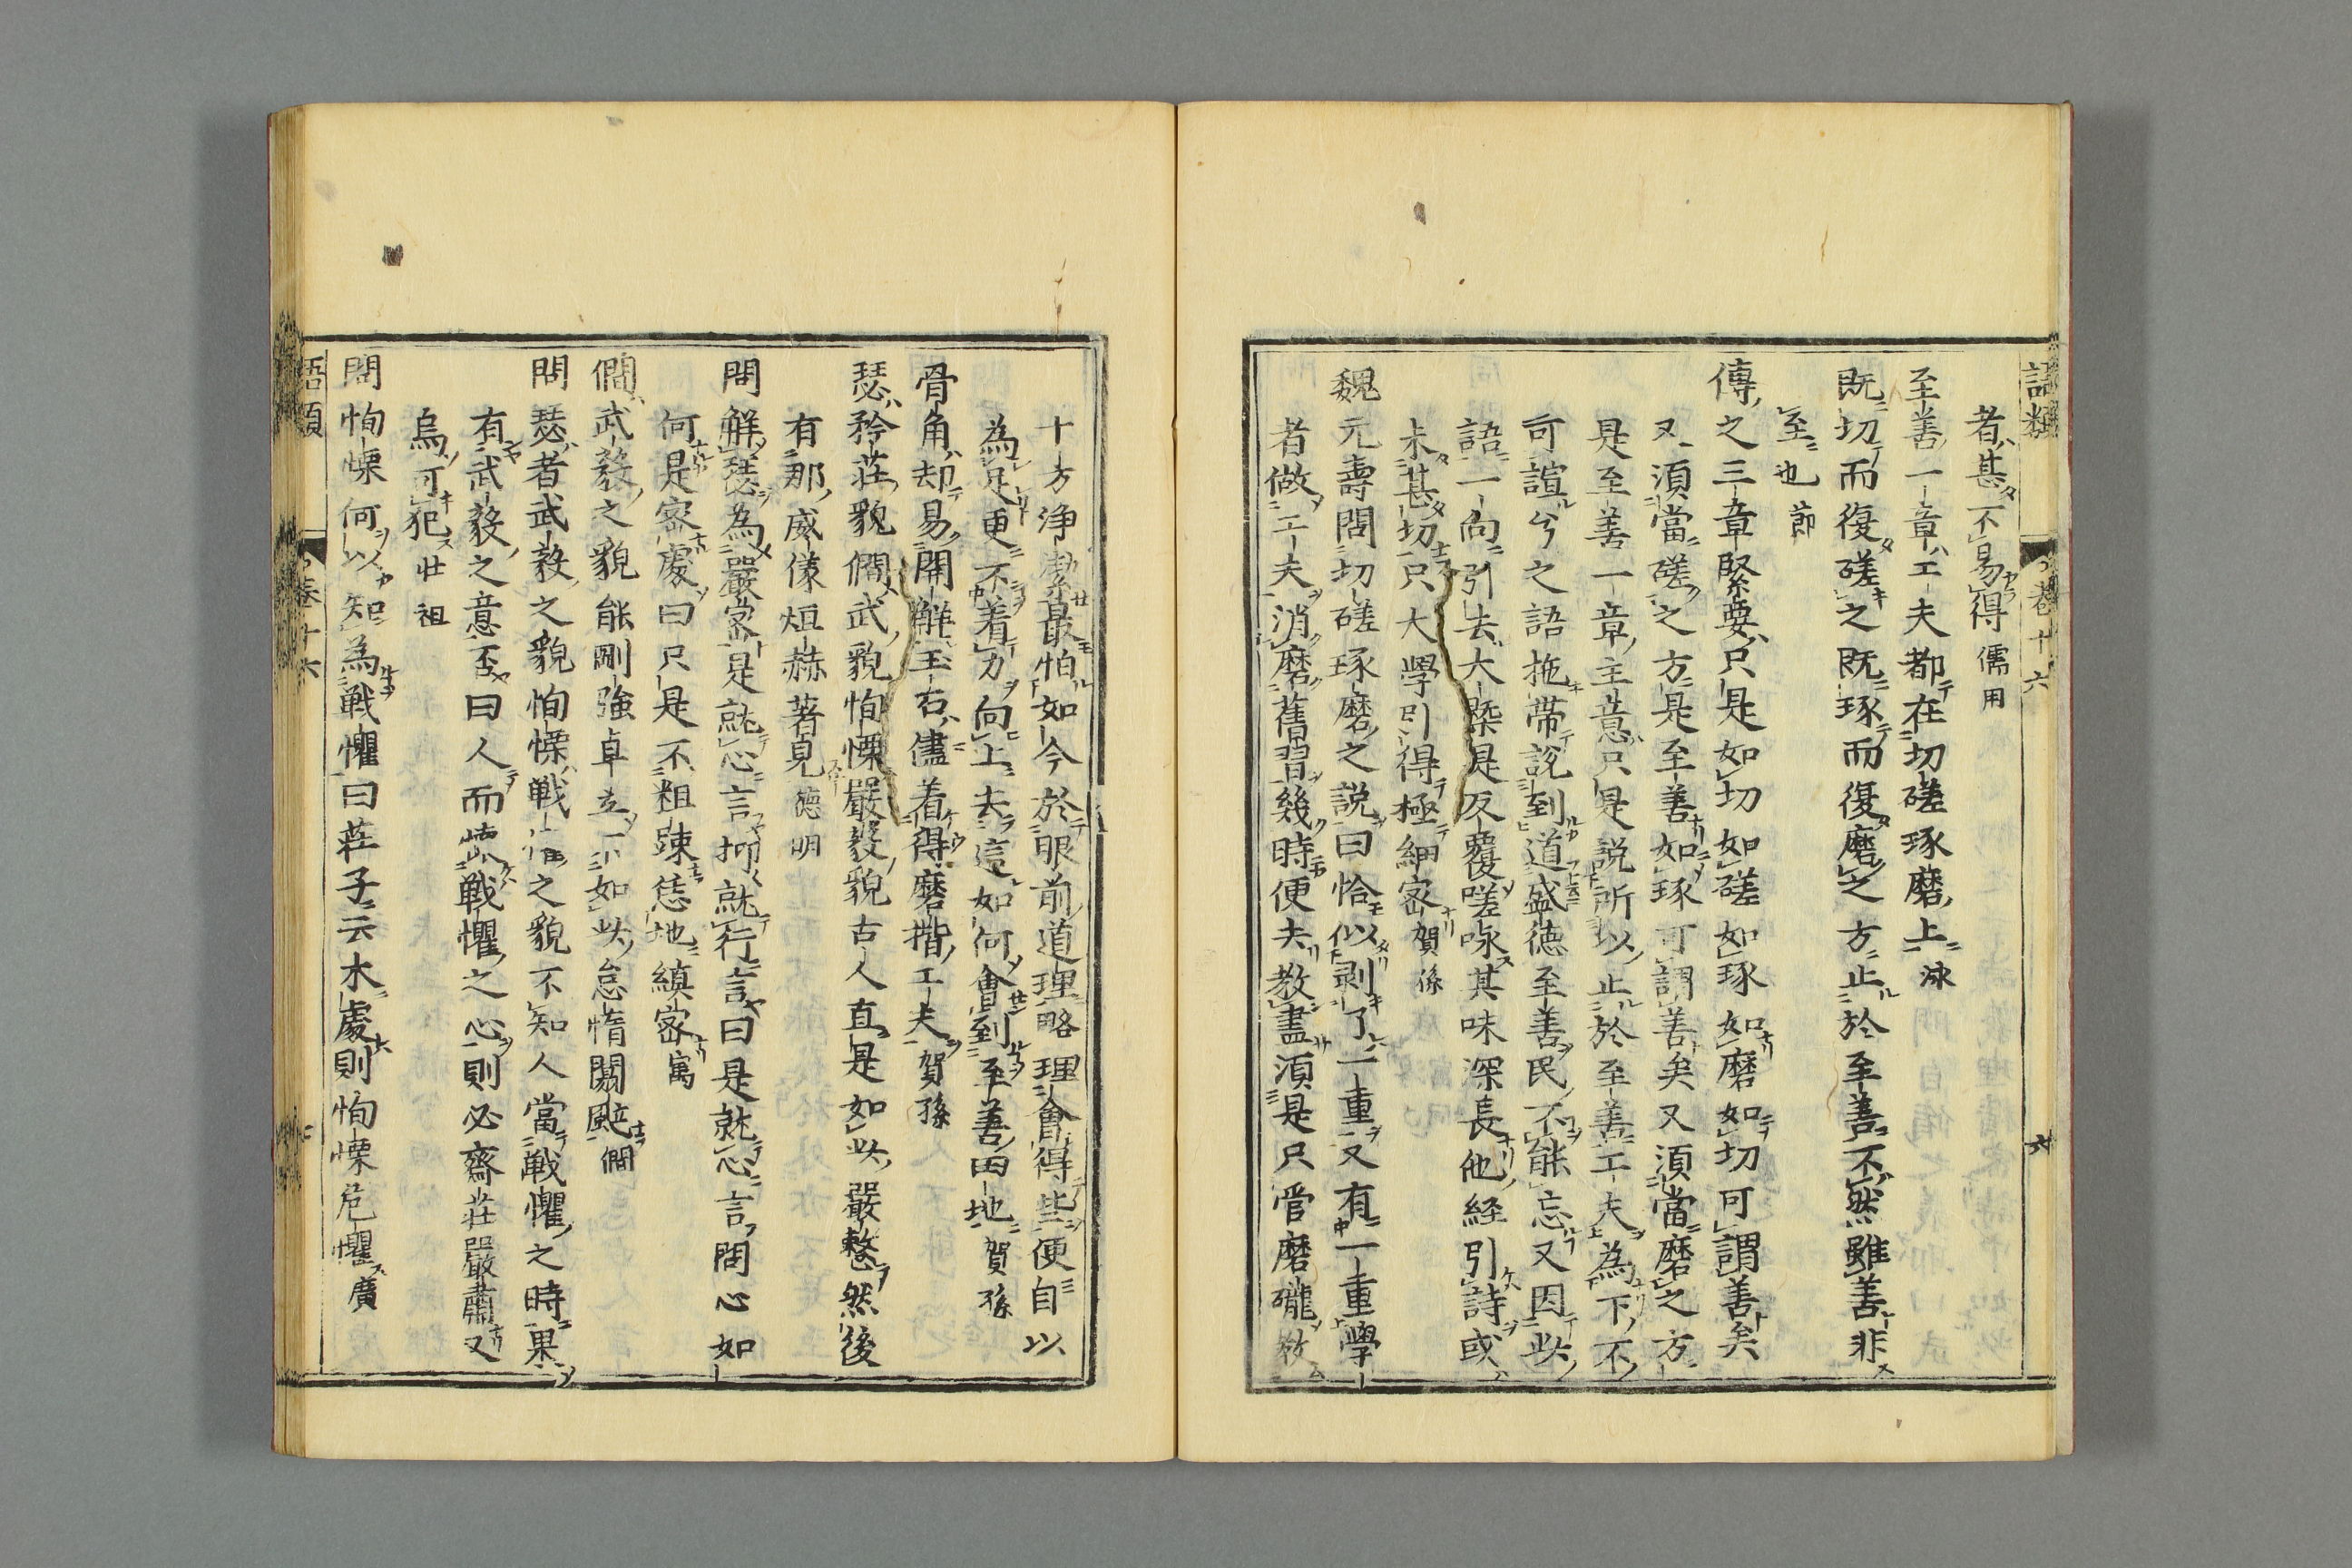 語類　卷十六　六
者甚不易得儒用
至善一章工夫都在切磋琢磨上泳
既切而復磋之既琢而復磨之方止於至善不然雖善非
至也節
傳之三章緊要只是如切如磋如琢如磨如切可謂善矣
又須當磋之方是至善如琢可謂善矣又須當磨之方
是至善一章主意只是説所以止於至善工夫為下不
可諠兮之語拖帶説到道盛德至善民不能忘又因此
語一向引去大槩是反覆嗟咏其味深長他經引詩或
未甚切只大學引得極細密賀孫
魏元壽問切磋琢磨之説曰恰似剥了一重又有一重學
者做工夫消磨舊習幾時便去教盡須是只管磨礲教
十方淨潔最怕如今於眼前道理略理會得些便自以
為足更不着力向上去這如何會到至善田地賀孫
骨角却易開解玉石儘着得磨揩工夫賀孫
瑟矜莊貌僩武貌恂慄嚴毅貌古人直是如此嚴整然後
有那威儀烜赫著見德明
問解瑟為嚴密是就心言抑就行言曰是就心言問心如
何是密處曰只是不粗踈恁地縝密㝢
僩武毅之貌能剛強卓立不如此怠惰闒颯僩
問瑟者武毅之貌恂慄戰懼之貌不知人當戰懼之時果
有武毅之意否曰人而懷戰懼之心則必齋莊嚴肅又
烏可犯壯祖
問恂慄何以知為戰懼曰莊子云木處則恂慄危懼廣
語類　卷十六